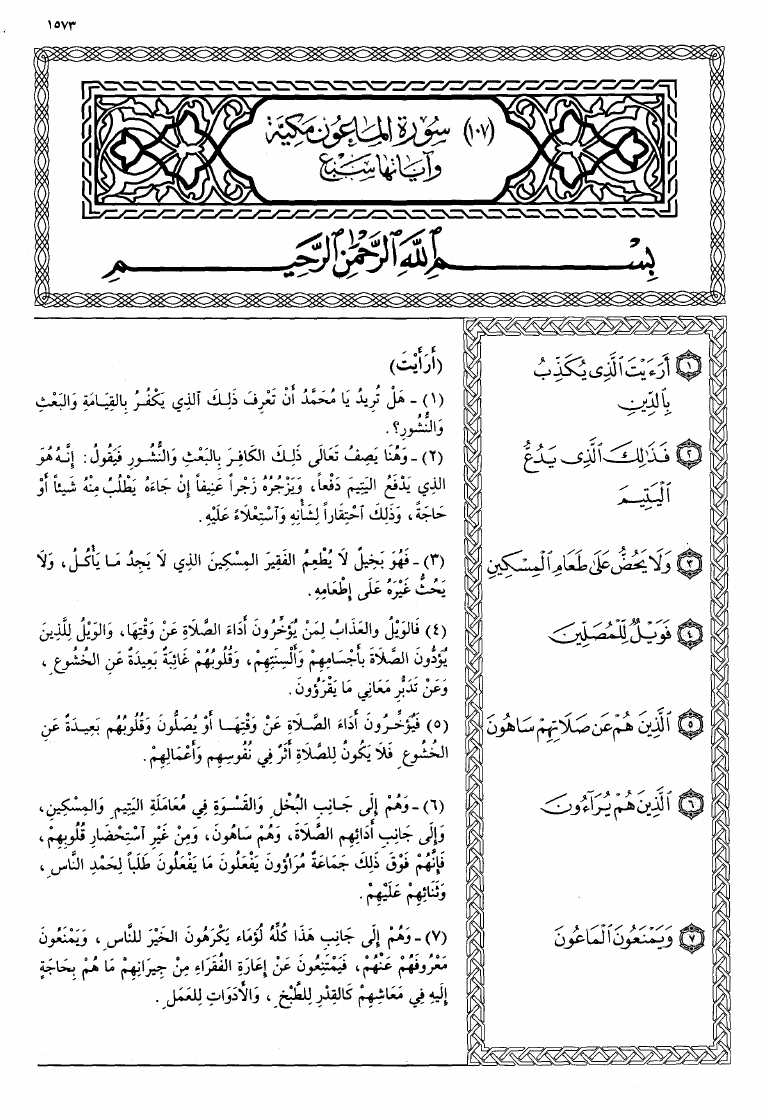 ١٥٧٣
(١٠٧) سُورَة المَاعُون مَكيّة
وآياتها سَبْع
بِسْمِ ٱللَّهِ ٱلرَّحْمَٰنِ ٱلرَّحِيمِ
١ أَرَءَيْتَ ٱلَّذِى يُكَذِّبُ
بِٱلدِّينِ
٢ فَذَٰلِكَ ٱلَّذِى يَدُعُّ
ٱلْيَتِيمَ
٣ وَلَا يَحُضُّ عَلَىٰ طَعَامِ ٱلْمِسْكِينِ
٤ فَوَيْلٌ لِّلْمُصَلِّينَ
٥ ٱلَّذِينَ هُمْ عَن صَلَاتِهِمْ سَاهُونَ
٦ ٱلَّذِينَ هُمْ يُرَآءُونَ
٧ وَيَمْنَعُونَ ٱلْمَاعُونَ
(أَرَأَيْتَ)
(١) - هَلْ تُرِيدُ يَا مُحَمَّدُ أَنْ تَعْرِفَ ذَلِكَ ٱلذِي يَكْفُرُ بِالقِيَامَةِ وَالبَعْثِ
وَالنُّشُورِ؟.
(٢) - وَهُنَا يَصِفُ تَعَالَى ذَلِكَ الكَافِرَ بِالبَعْثِ وَالنُّشُورِ فَيَقُولُ: إِنَّهُ هُوَ
الذِي يَدْفَعُ اليَتِيمَ دَفْعاً، وَيَزْجُرُهُ زَجْراً عَنِيفاً إِنْ جَاءَهُ يَطْلُبُ مِنْهُ شَيْئاً أَوْ
حَاجَةً، وَذَلِكَ ٱحْتِقَاراً لِشَأْنِهِ وَٱسْتِعْلَاءً عَلَيْهِ.
(٣) - فَهُوَ بَخِيلٌ لَا يُطْعِمُ الفَقِيرَ المِسْكِينَ الذِي لَا يَجِدُ مَا يَأْكُلُ، وَلَا
يَحُثُّ غَيْرَهُ عَلَى إِطْعَامِهِ.
(٤) فَالوَيْلُ والعَذَابُ لِمَنْ يُؤَخِّرُونَ أَدَاءَ الصَّلَاةِ عَنْ وَقْتِهَا، وَالوَيْلُ لِلَّذِينَ
يُؤَدُّونَ الصَّلَاةَ بِأَجْسَامِهِمْ وَأَلْسِنَتِهِمْ، وَقُلُوبُهُمْ غَائِبَةٌ بَعِيدَةٌ عَنِ الخُشُوعِ،
وَعَنْ تَدَبُّرِ مَعَانِي مَا يَقْرَؤُونَ.
(٥) فَيُؤَخِّرُونَ أَدَاءَ الصَّلَاةِ عَنْ وَقْتِهَا أَوْ يُصَلُّونَ وَقُلُوبُهُم بَعِيدَةٌ عَنِ
الخُشُوعِ فَلَا يَكُونُ لِلصَّلَاةِ أَثَرٌ فِي نُفُوسِهِم وَأَعْمَالِهِمْ.
(٦) - وَهُمْ إِلَى جَانِبِ البُخْلِ وَالقَسْوَةِ فِي مُعَامَلَةِ اليَتِيمِ وَالمِسْكِينِ،
وَإِلَى جَانِبِ أَدَائِهِم الصَّلَاةَ، وَهُمْ سَاهُونَ، وَمِنْ غَيْرِ ٱسْتِحْضَارِ قُلُوبِهِمْ،
فَإِنَّهُمْ فَوْقَ ذَلِكَ جَمَاعَةٌ مُرَاؤُونَ يَفْعَلُونَ مَا يَفْعَلُونَ طَلَباً لِحَمْدِ النَّاسِ،
وَثَنَائِهِمْ عَلَيْهِمْ.
(٧) - وَهُمْ إِلَى جَانِبِ هَذَا كُلِّهِ لُؤَمَاء يَكْرَهُونَ الخَيْرَ لِلنَّاسِ، وَيَمْنَعُونَ
مَعْرُوفَهُمْ عَنْهُمْ، فَيَمْتَنِعُونَ عَنْ إِعَارَةِ الفُقَرَاءِ مِنْ جِيرَانِهِمْ مَا هُمْ بِحَاجَةٍ
إِلَيْهِ فِي مَعَاشِهِمْ كَالقِدْرِ لِلطَّبْخِ، وَالأَدَوَاتِ لِلعَمَلِ.